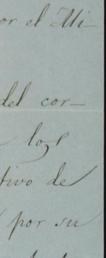 or el Mi-
del cor-
los
tivo de
por su